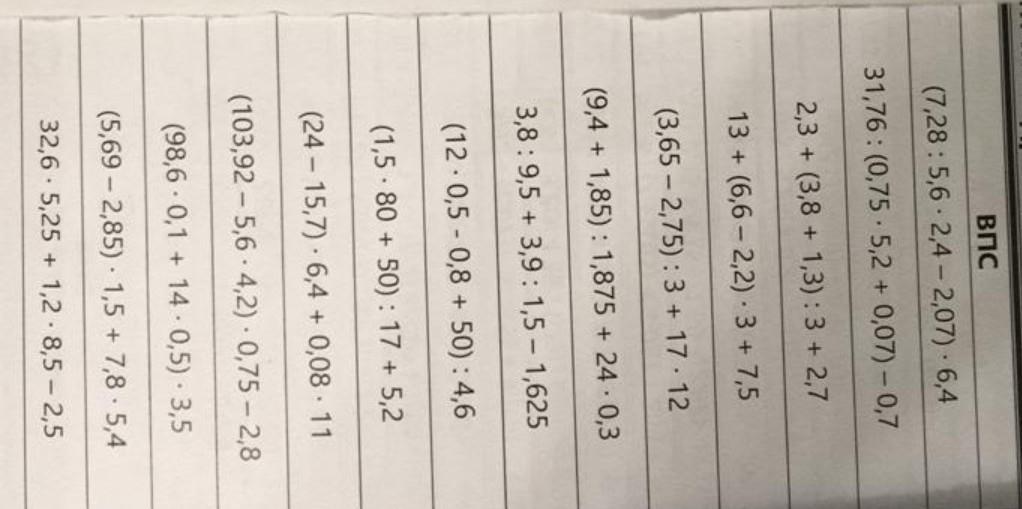 ВПС
(7,28 : 5,6 · 2,4 – 2,07) · 6,4
31,76 : (0,75 · 5,2 + 0,07) – 0,7
2,3 + (3,8 + 1,3) : 3 + 2,7
13 + (6,6 – 2,2) · 3 + 7,5
(3,65 – 2,75) : 3 + 17 · 12
(9,4 + 1,85) : 1,875 + 24 · 0,3
3,8 : 9,5 + 3,9 : 1,5 – 1,625
(12 · 0,5 - 0,8 + 50) : 4,6
(1,5 · 80 + 50) : 17 + 5,2
(24 – 15,7) · 6,4 + 0,08 · 11
(103,92 – 5,6 · 4,2) · 0,75 – 2,8
(98,6 · 0,1 + 14 · 0,5) · 3,5
(5,69 – 2,85) · 1,5 + 7,8 · 5,4
32,6 · 5,25 + 1,2 · 8,5 – 2,5